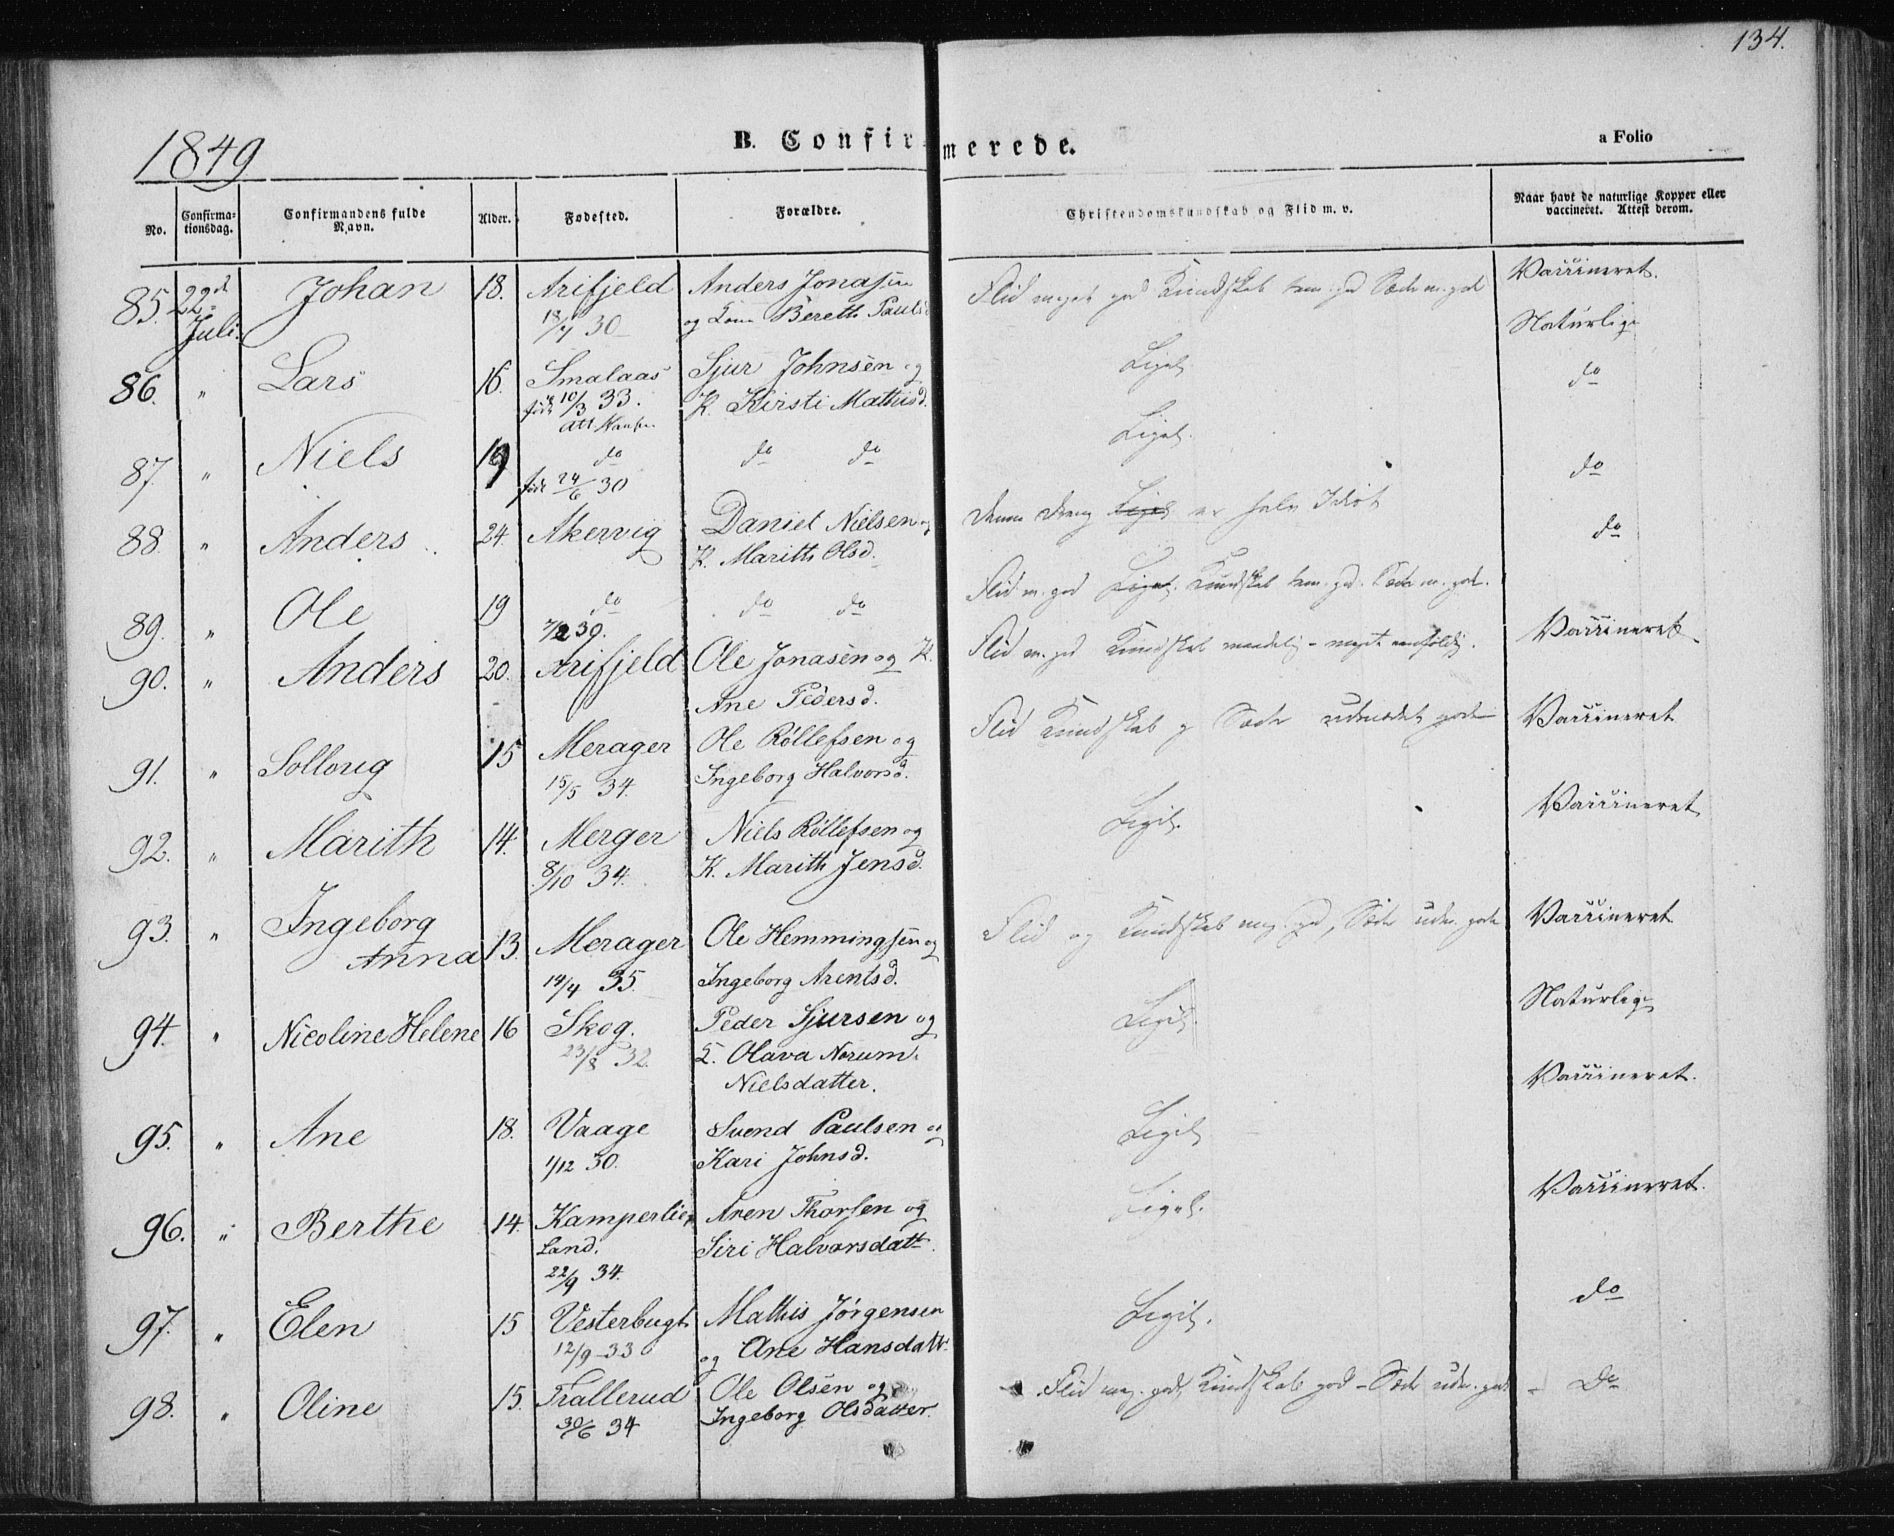 134.
1849
B. Confirmerede.
a Folio
No.
Confirma-
tionsdag.
Confirmandens fulde
Navn.
Alder.
Fødested.
Forældre.
Christendomskundskab og Flid m. v.
Naar havt de naturlige Kopper eller
vaccineret. Attest derom.
85. 22d Johan 18. Arifjeld Anders Jonasen Flid meget god Kundskab tem. god Sæder m. gode Vaccineret.
Juli. 18/4 30 og Kone Bereth Paulsd
Naturlige
86. " Lars 16. Smalaas Sjur Johnsen og Ligel. do
født 10/3 33. K. Kirsti Mathisd.
att
87. " Niels 19 do do do Ligel. do
født 24/6 30
88. " Anders 24. Akervig Daniel Nielsen og Denne Dreng Ligel er halv Idiot do
K. Marith Olsd.
89. " Ole 19 do do do Flid m. god Ligel. Kundskab tem. god. Sæder m. gode.
7/2 30.
90. " Anders 20. Arifjeld Ole Jonasen og K. Flid m. god Kundskab maadelig - meget eenfoldig. Vaccineret
Ane Pedersd.
91. " Sollovig 15 Merager Ole Røllefsen og Flid Kundskab og Sæder udmærket gode Vaccineret
15/5 34. Ingeborg Halvorsd.
92. " Marith 14. Merger Niels Røllefsen og Ligel. Vaccineret
8/10 34. K. Marith Jensd.
93. " Ingeborg Anna 13. Merager Ole Hemmingsen og Flid og Kundskab meg. god, Sæder udm. gode Vaccineret
14/4 35. Ingeborg Arentsd.
94. " Nicoline Helene 16 Skog. Peder Sjursen og Ligel. Naturlige
23/8 32. K. Olava Norum.
Nielsdatter.
95. " Ane 18. Vaage Svend Paulsen og Ligel. Vaccineret.
1/12 30. Kari Johnsd.
96. " Berthe 14. Kamperlie, Aren Thorsen og Ligel. Vaccineret.
Land. Siri Halvorsdatt.
22/9 34.
97. " Elen 15 Vesterbugt Mathis Jørgensen Ligel. do
12/9 33 og Ane Hansdatt.
98. " Oline 15. Trallerud Ole Olsen og Flid meg. god, Kundskab god - Sæder udm. gode Do
30/6 34 Ingeborg Olsdatter.